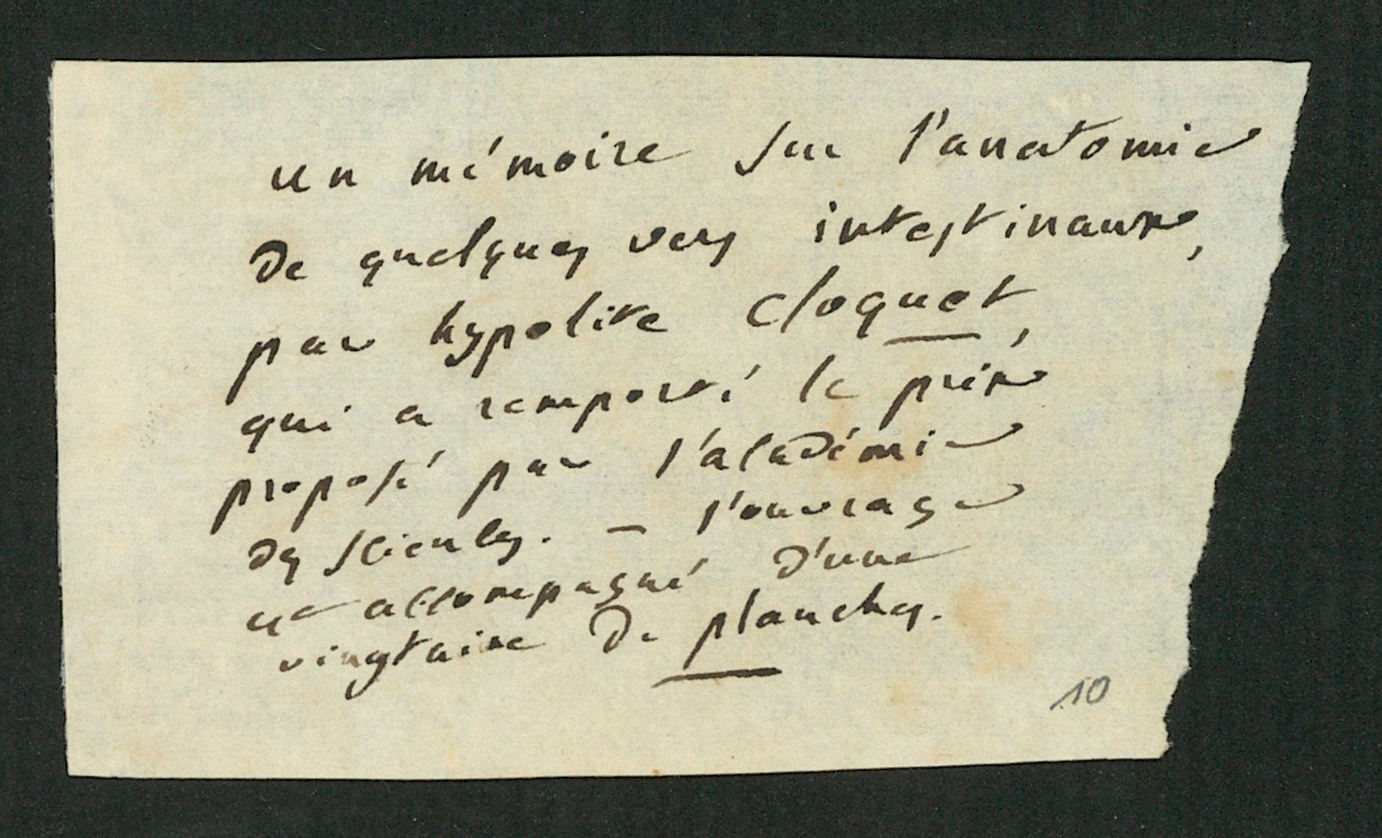 un mémoire sur l'anatomie
de quelques vers intestinaux,
par hypolite Cloquet,
qui a remporté le prix
proposé par l'académie
des sciences. – l'ouvrage
est accompagné d'une
vingtaine de planches.
10